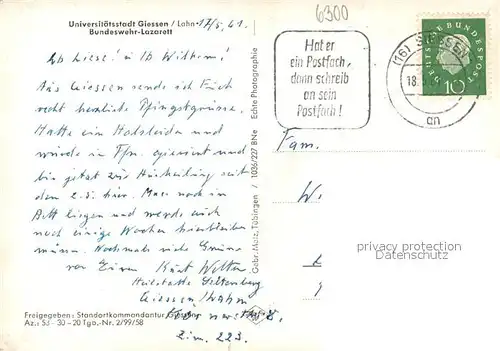 Universitätsstadt Giessen / Lahn 17/5.61.
Bundeswehr-Lazarett
6300
Hat er
ein Postfach,
dann schreib
an sein
Postfach!
(16) GIESSEN
18.
an
DEUTSCHE BUNDESPOST
10
Ihr Liese! u. Ihr Wilhelm!
Aus Giessen sende ich Euch
recht herzliche Pfingstgrüsse.
Hatte ein Halsleiden und
wurde in Ffm. operiert und
bin jetzt zur Ausheilung seit
dem 2.5. hier. Muss noch im
Bett liegen und werde auch
noch einige Wochen hierbleiben
müssen. Nochmals viele Grüsse
von Eurem Kurt
Heilstätte Seltersberg
Giessen/Lahn
Zim. 223.
Fam.
W.
privacy protection watermark
© ansichtskartenversand.com
Echte Photographie
Gebr. Metz, Tübingen / 1036/227 BNe
Freigegeben: Standortkommandantur Giessen
Az.: 53 - 30 - 20 Tgb.-Nr. 2/99/58